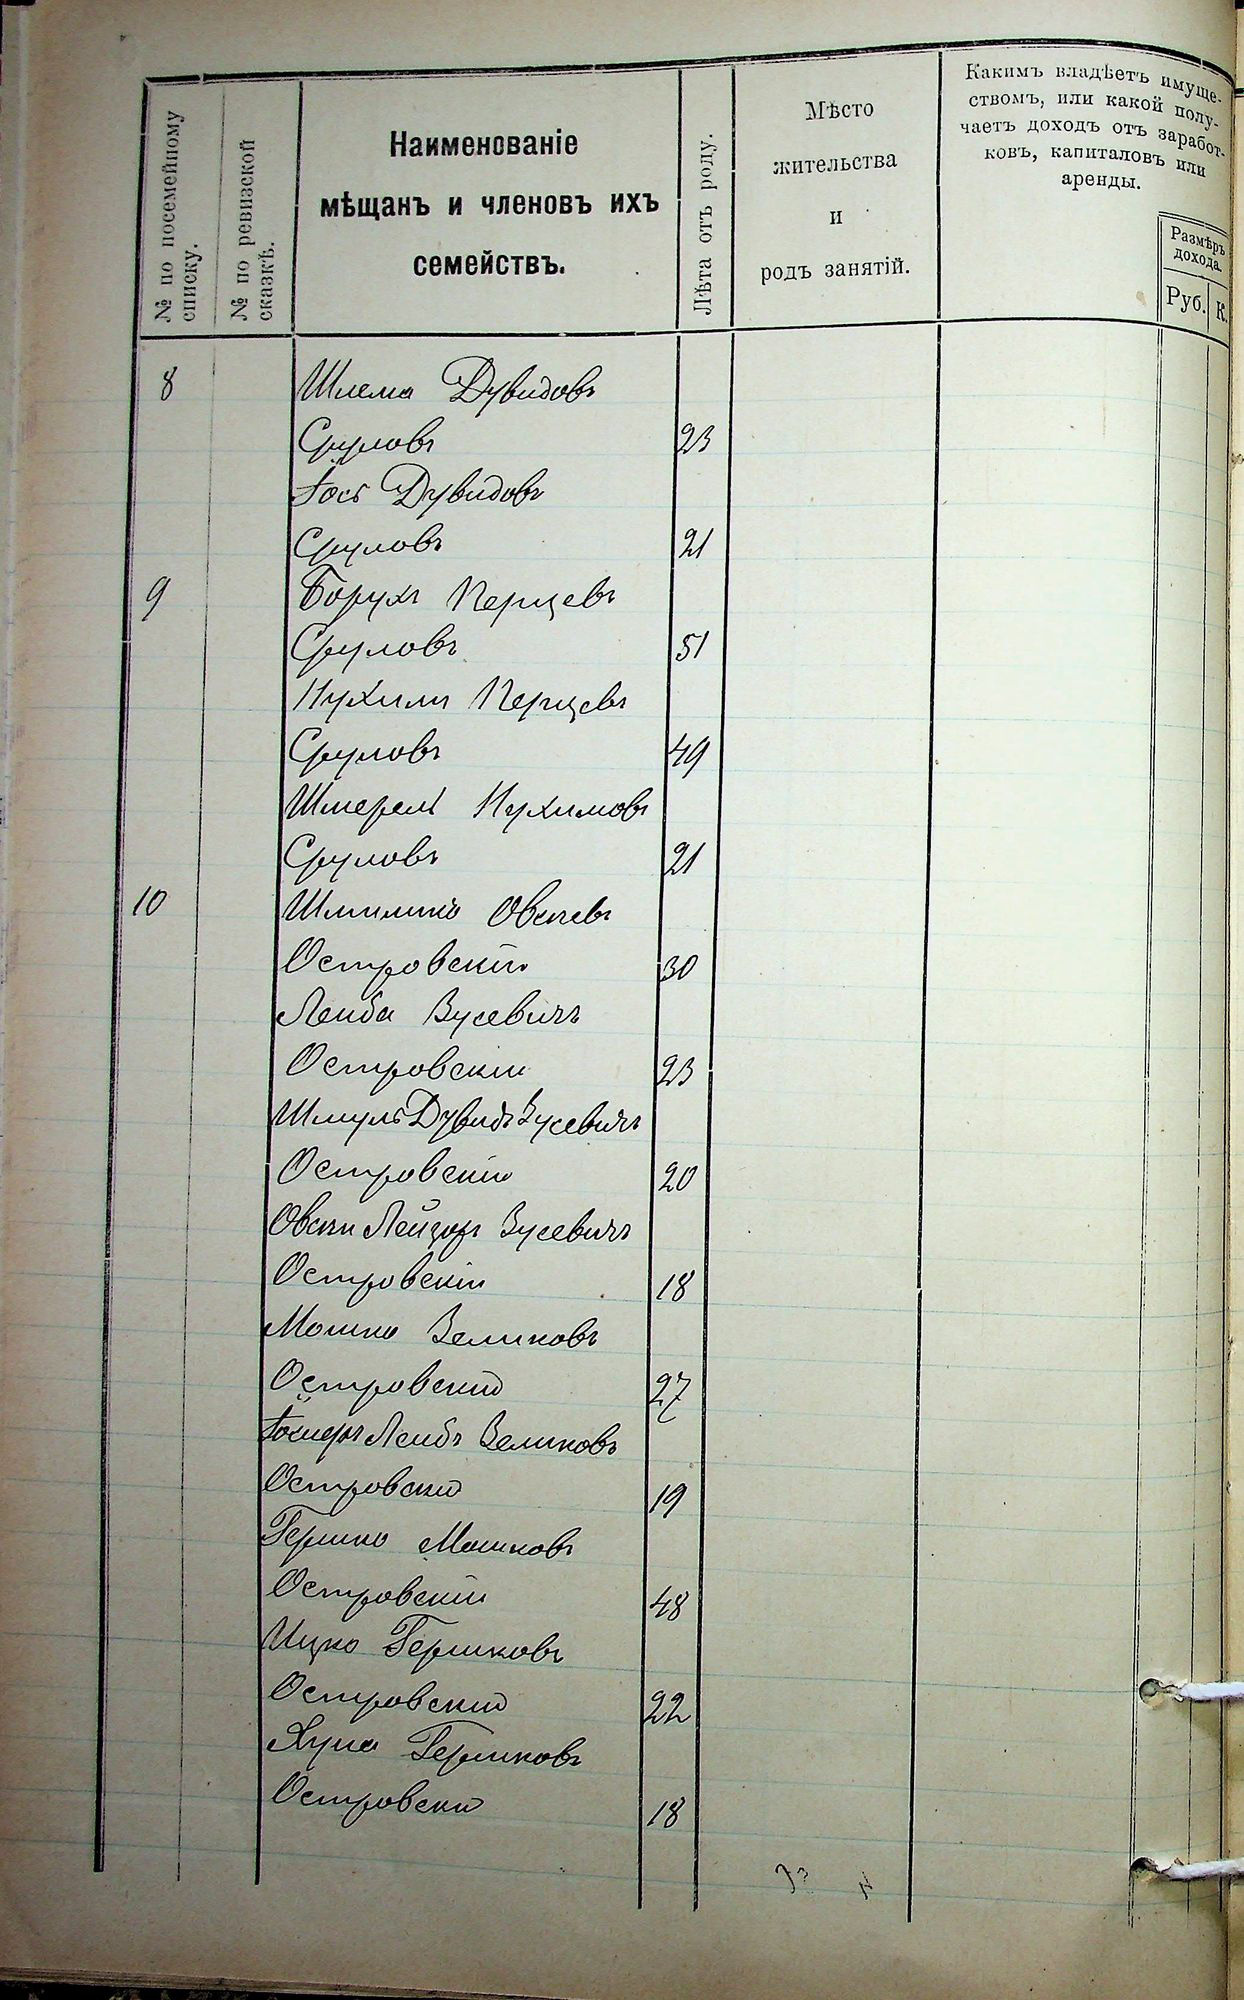 № по посемейному
списку.
№ по ревизской
сказкѣ.
Наименованіе
мѣщанъ и членовъ ихъ
семействъ.
Лѣта отъ роду.
Мѣсто
жительства
и
родъ занятій.
Какимъ владѣетъ имуще-
ствомъ, или какой полу-
чаетъ доходъ отъ заработ-
ковъ, капиталовъ или
аренды.
Размѣръ
дохода.
Руб. К.
8 Шлема Дувидовъ
Сруловъ 23
Іось Дувидовъ
Сруловъ 21
9 Борухъ Перцевъ
Сруловъ 51
Нухимъ Перцевъ
Сруловъ 49
Шмерель Нухимовъ
Сруловъ 21
10 Шлиомко Овсѣевъ
Островскій 30
Лейба Зусевичъ
Островскій 23
Шмуль Дувидъ Зусевичъ
Островскій 20
Овсей Лейзоръ Зусевичъ
Островскій 18
Мошко Зеликовъ
Островскій 27
Лейбъ Зеликовъ
Островскій 19
Гершко Мошковъ
Островскій 48
Ицко Гершковъ
Островскій 22
Гершковъ
Островскій 18